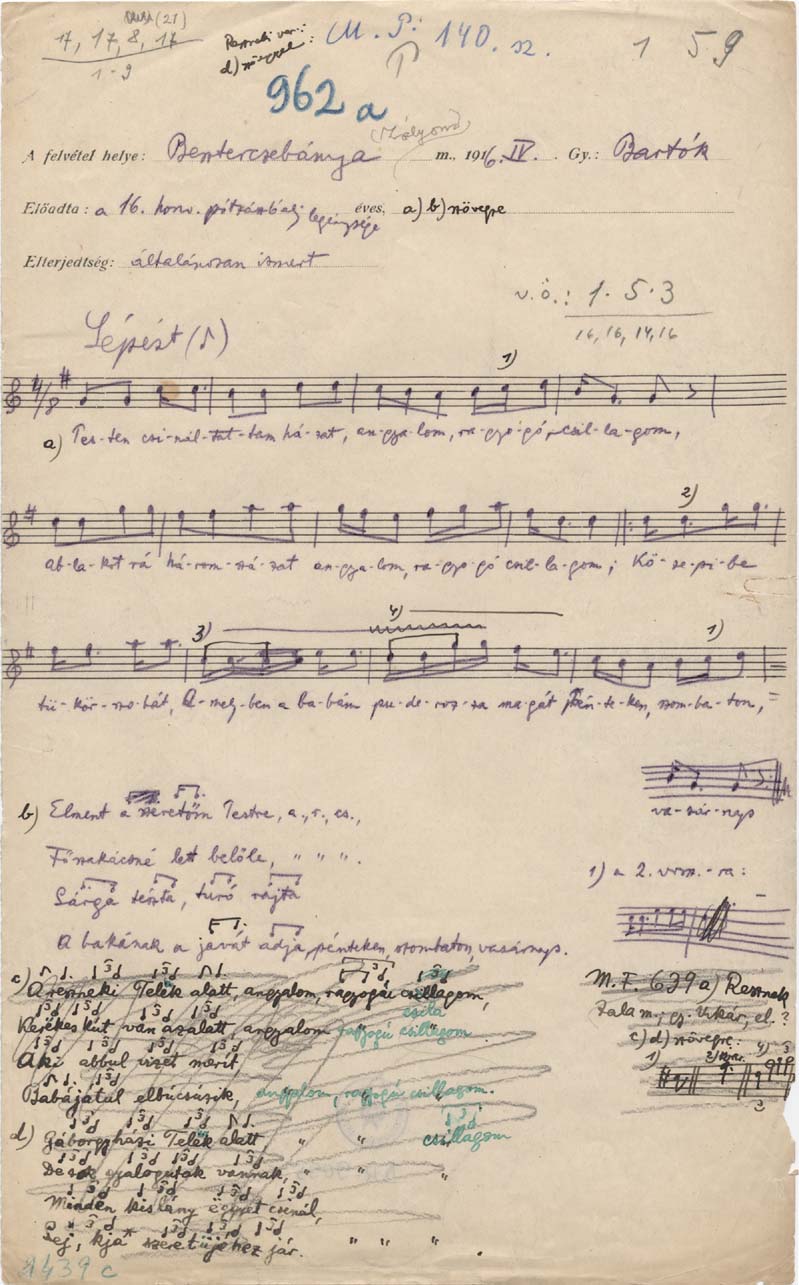 17, 17, 8, 17
1-9
d) szöveggel
M. F. 140. sz.
1 5 9
962 a
A felvétel helye: Besztercebánya (Zólyom) m., 1916. IV. Gy.: Bartók
Előadta: a 16. honv. pótzászlalj legénysége éves, a) b) szövegre
Elterjedtség: általánosan ismert
v. ö.: 1. 5. 3
16, 16, 14, 16
Lépést (♪)
1)
a) Tes-ten csi-nál-tat-tam há-zat, an-gya-lom, ra-gyo-gó, csil-la-gom,
2)
ab-la-kot rá há-rom-szá-zat an-gya-lom, ra-gyo-gó csil-la-gom; Kö-ze-pi-be
3) 4) 1)
tü-kör-szo-bát, A-mely-ben a ba-bám pu-de-roz-za ma-gát Pén-te-ken, szom-ba-ton,
va-sár-nap
b) Elment a szeretőm Testre, a., r., cs.,
Főszakácsné lett belőle, " " ".
Sárga tészta, túró rajta
A bakának a javát adja, pénteken, szombaton, vasárnap.
1) a 2. vrsz.-ra:
c) A resneki Telek alatt, angyalom, ragyogói csillagom,
Kerekes kút van azalatt, angyalom ragyogú csillagom
Aki abbul vizet merit,
Babájatul elbúcsúzik, angyalom, ragyogú csillagom.
d) Gáborgyházi Telek alatt " " csillagom
De sok gyalogutak vannak, " " "
Minden kislány egyet csinál,
Sej, kja* szeretüjéhez jár. " " "
M. F. 639 a) Resnek
Zala m.; gy. Vikár, el. ?
c) d) szövegre:
1) 4) 3
1439 c